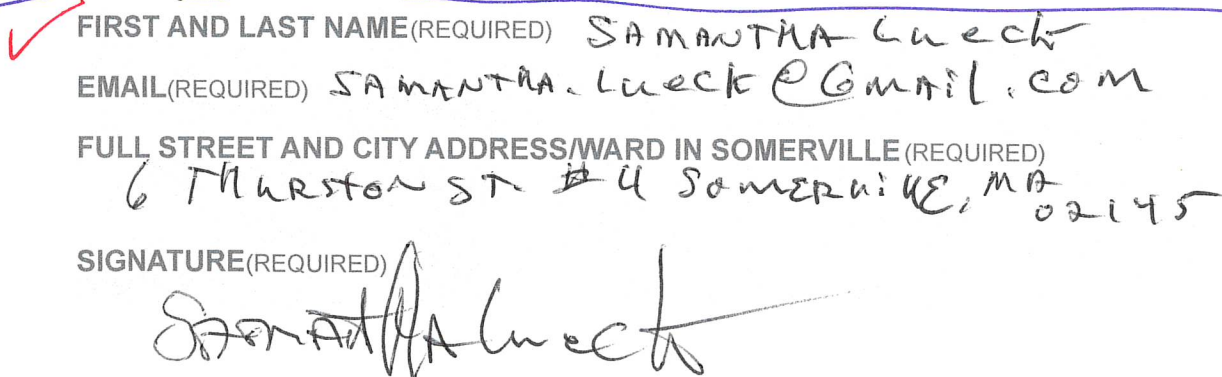 FIRST AND LAST NAME(REQUIRED) SAMANTHA Lueck
EMAIL(REQUIRED) SAMANTHA.Lueck@Gmail.com
FULL STREET AND CITY ADDRESS/WARD IN SOMERVILLE(REQUIRED)
6 THURSTON ST #4 SOMERVILLE, MA
02145
SIGNATURE(REQUIRED)
SAMANTHA Lueck